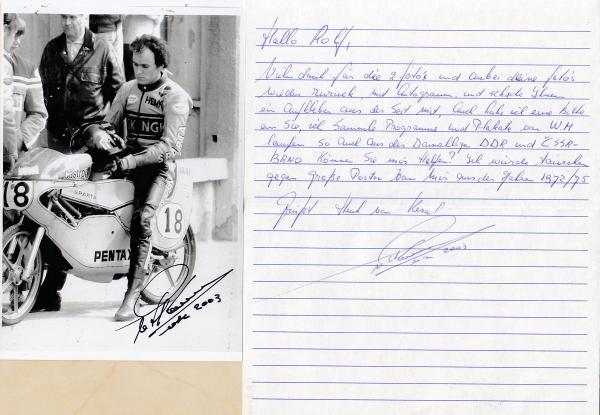 18
HENK
SPARTA
18
PENTAX
2003
Hallo Rolf,
Vielen dank für die 2 foto's und anbei deine foto's
wieder zurück mit Autogramm, und schicke Ihnen
ein Aufkleber aus der Zeit mit, Auch habe ich eine bitte
an Sie, ich Sammle Programme und Plakate von WM
laufen so auch aus der Damalige DDR und ČSSR-
BRNO Können Sie mir Helfen? Ich würde tauschen
gegen Große Poster von Mir aus der Jahren 1973/75
Grüßt Henk van Kessel
2003